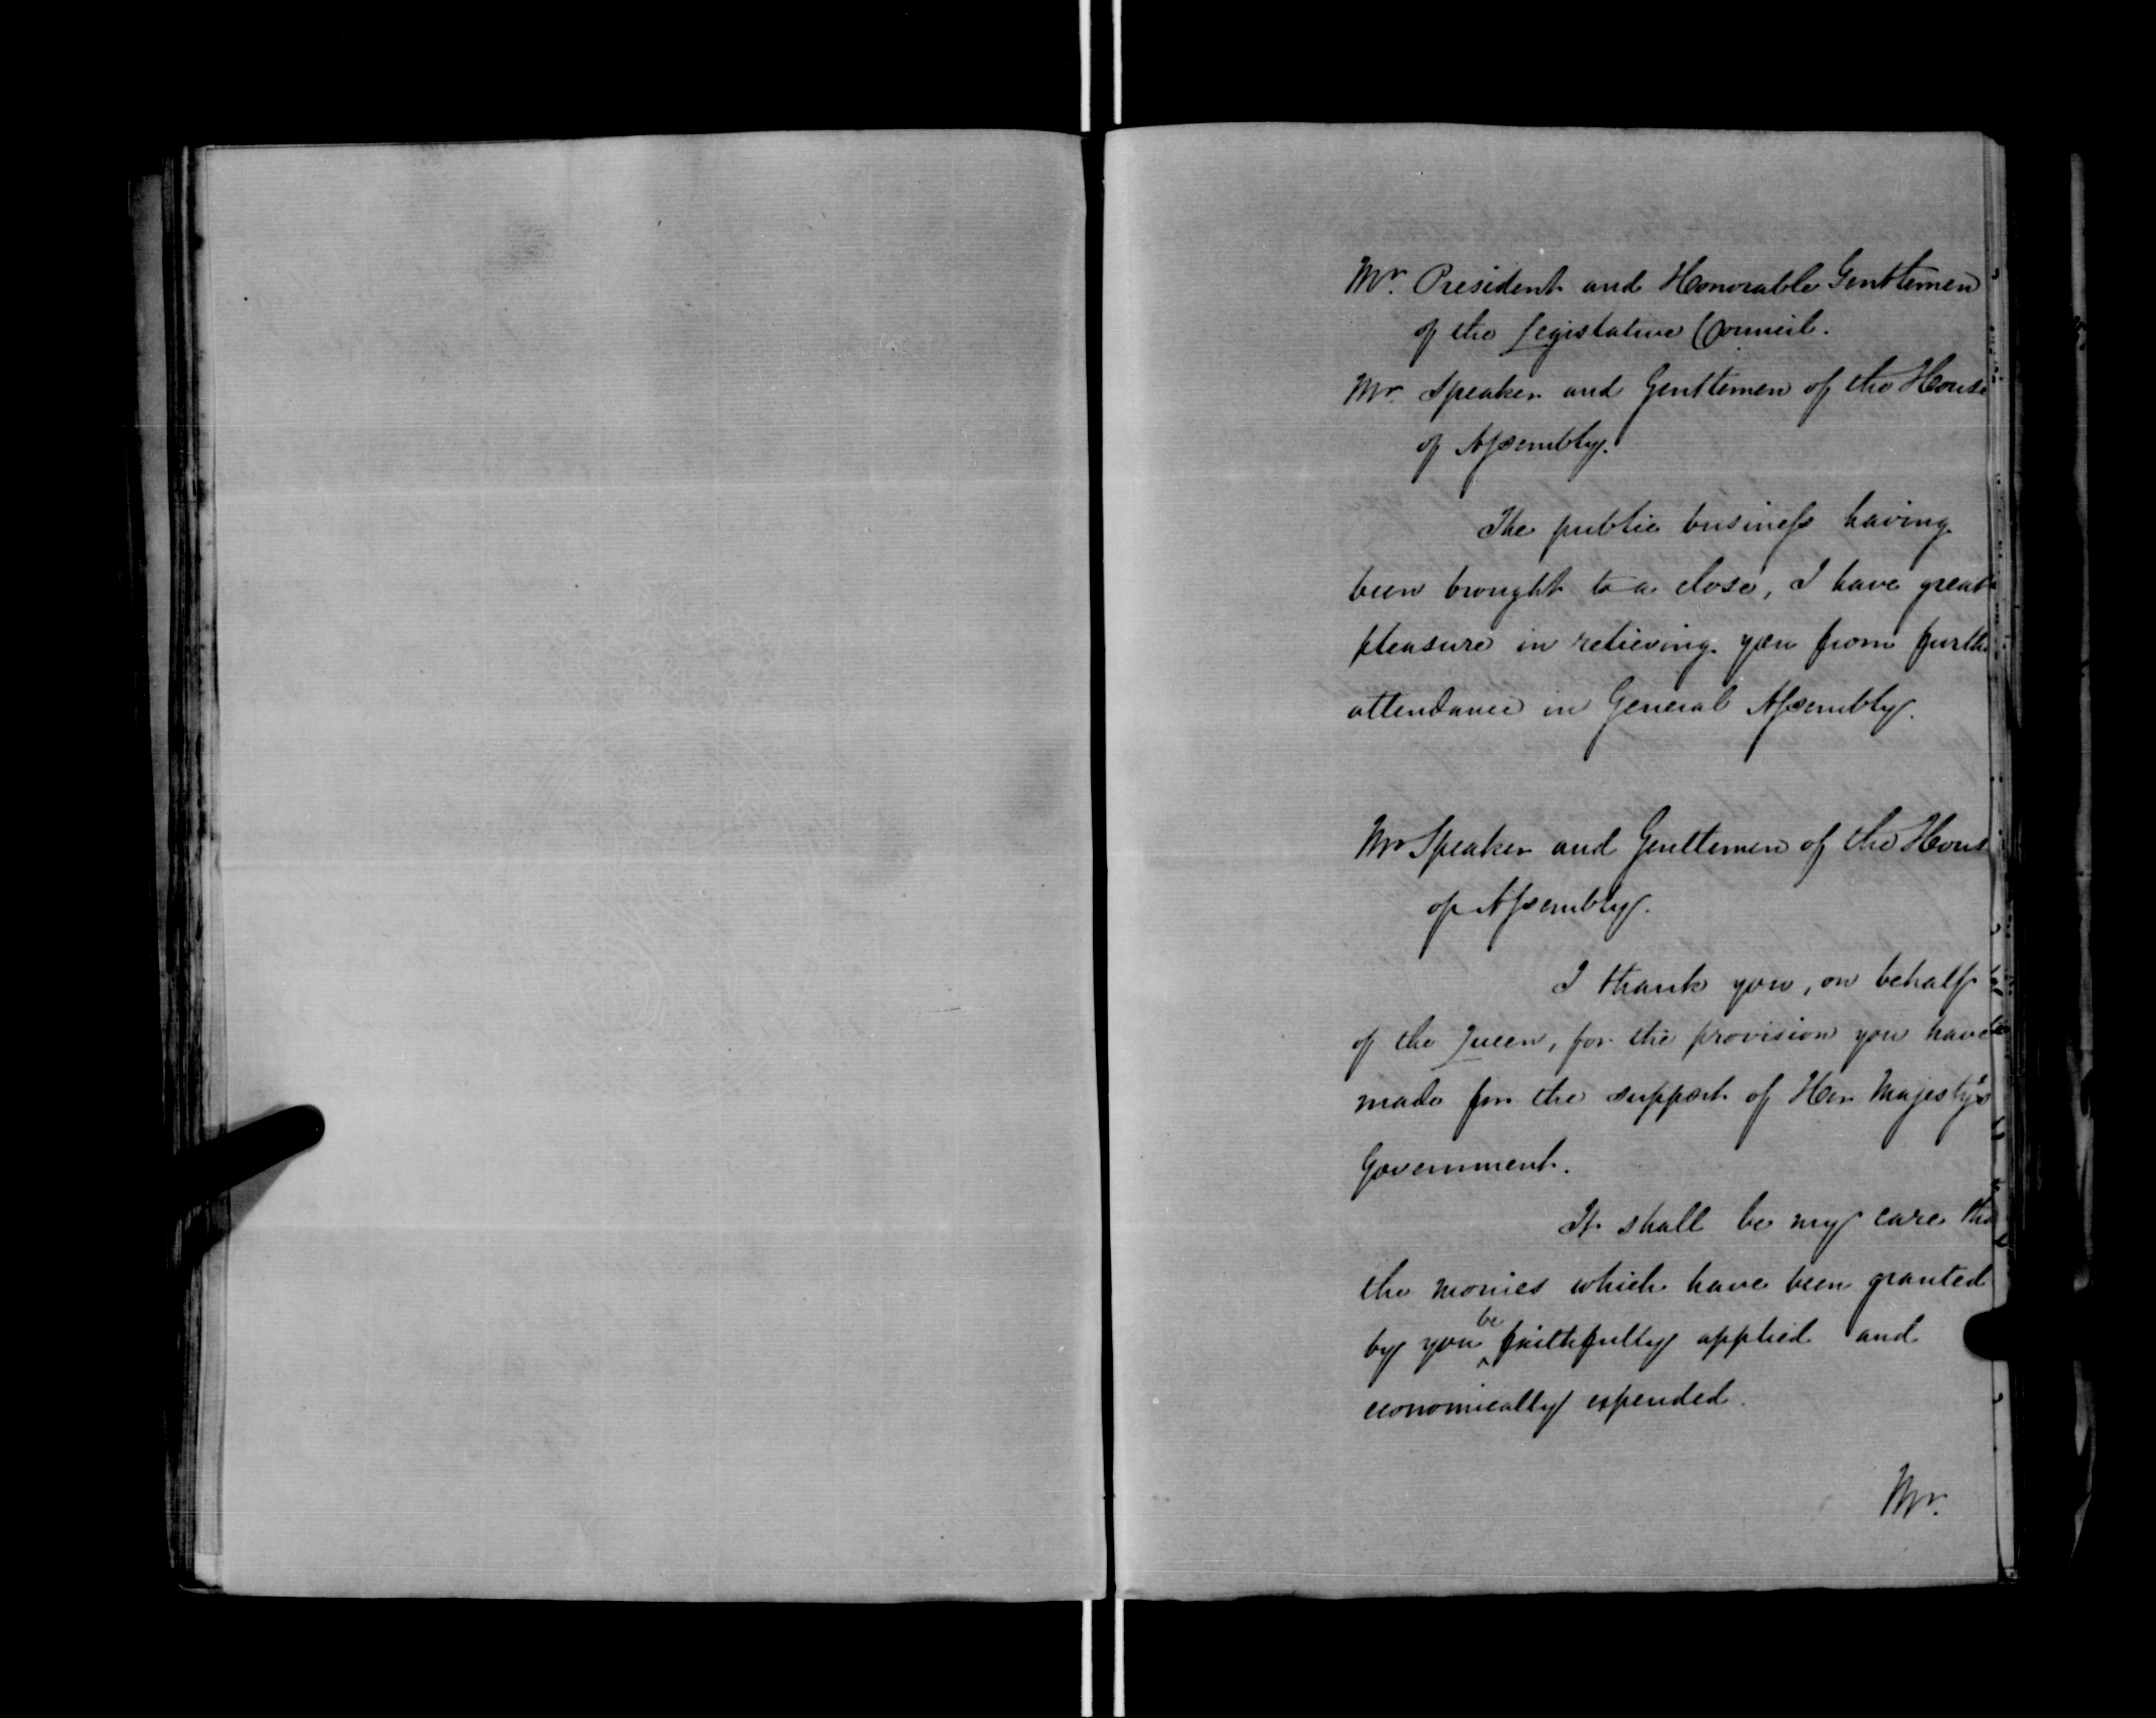 Mr. President and Honorable Gentlemen
of the Legislative Council.
Mr. Speaker and Gentlemen of the House
of Assembly.
The public business having
been brought to a close, I have great
pleasure in relieving you from furthe
attendance in General Assembly.
Mr Speaker and Gentlemen of the Hous
of Assembly.
I thank you, on behalf
of the Queen, for the provision you have
made for the support of Her Majesty's
Government.
It shall be my care tha
the monies which have been granted
by you be faithfully applied and
economically expended.
Mr.